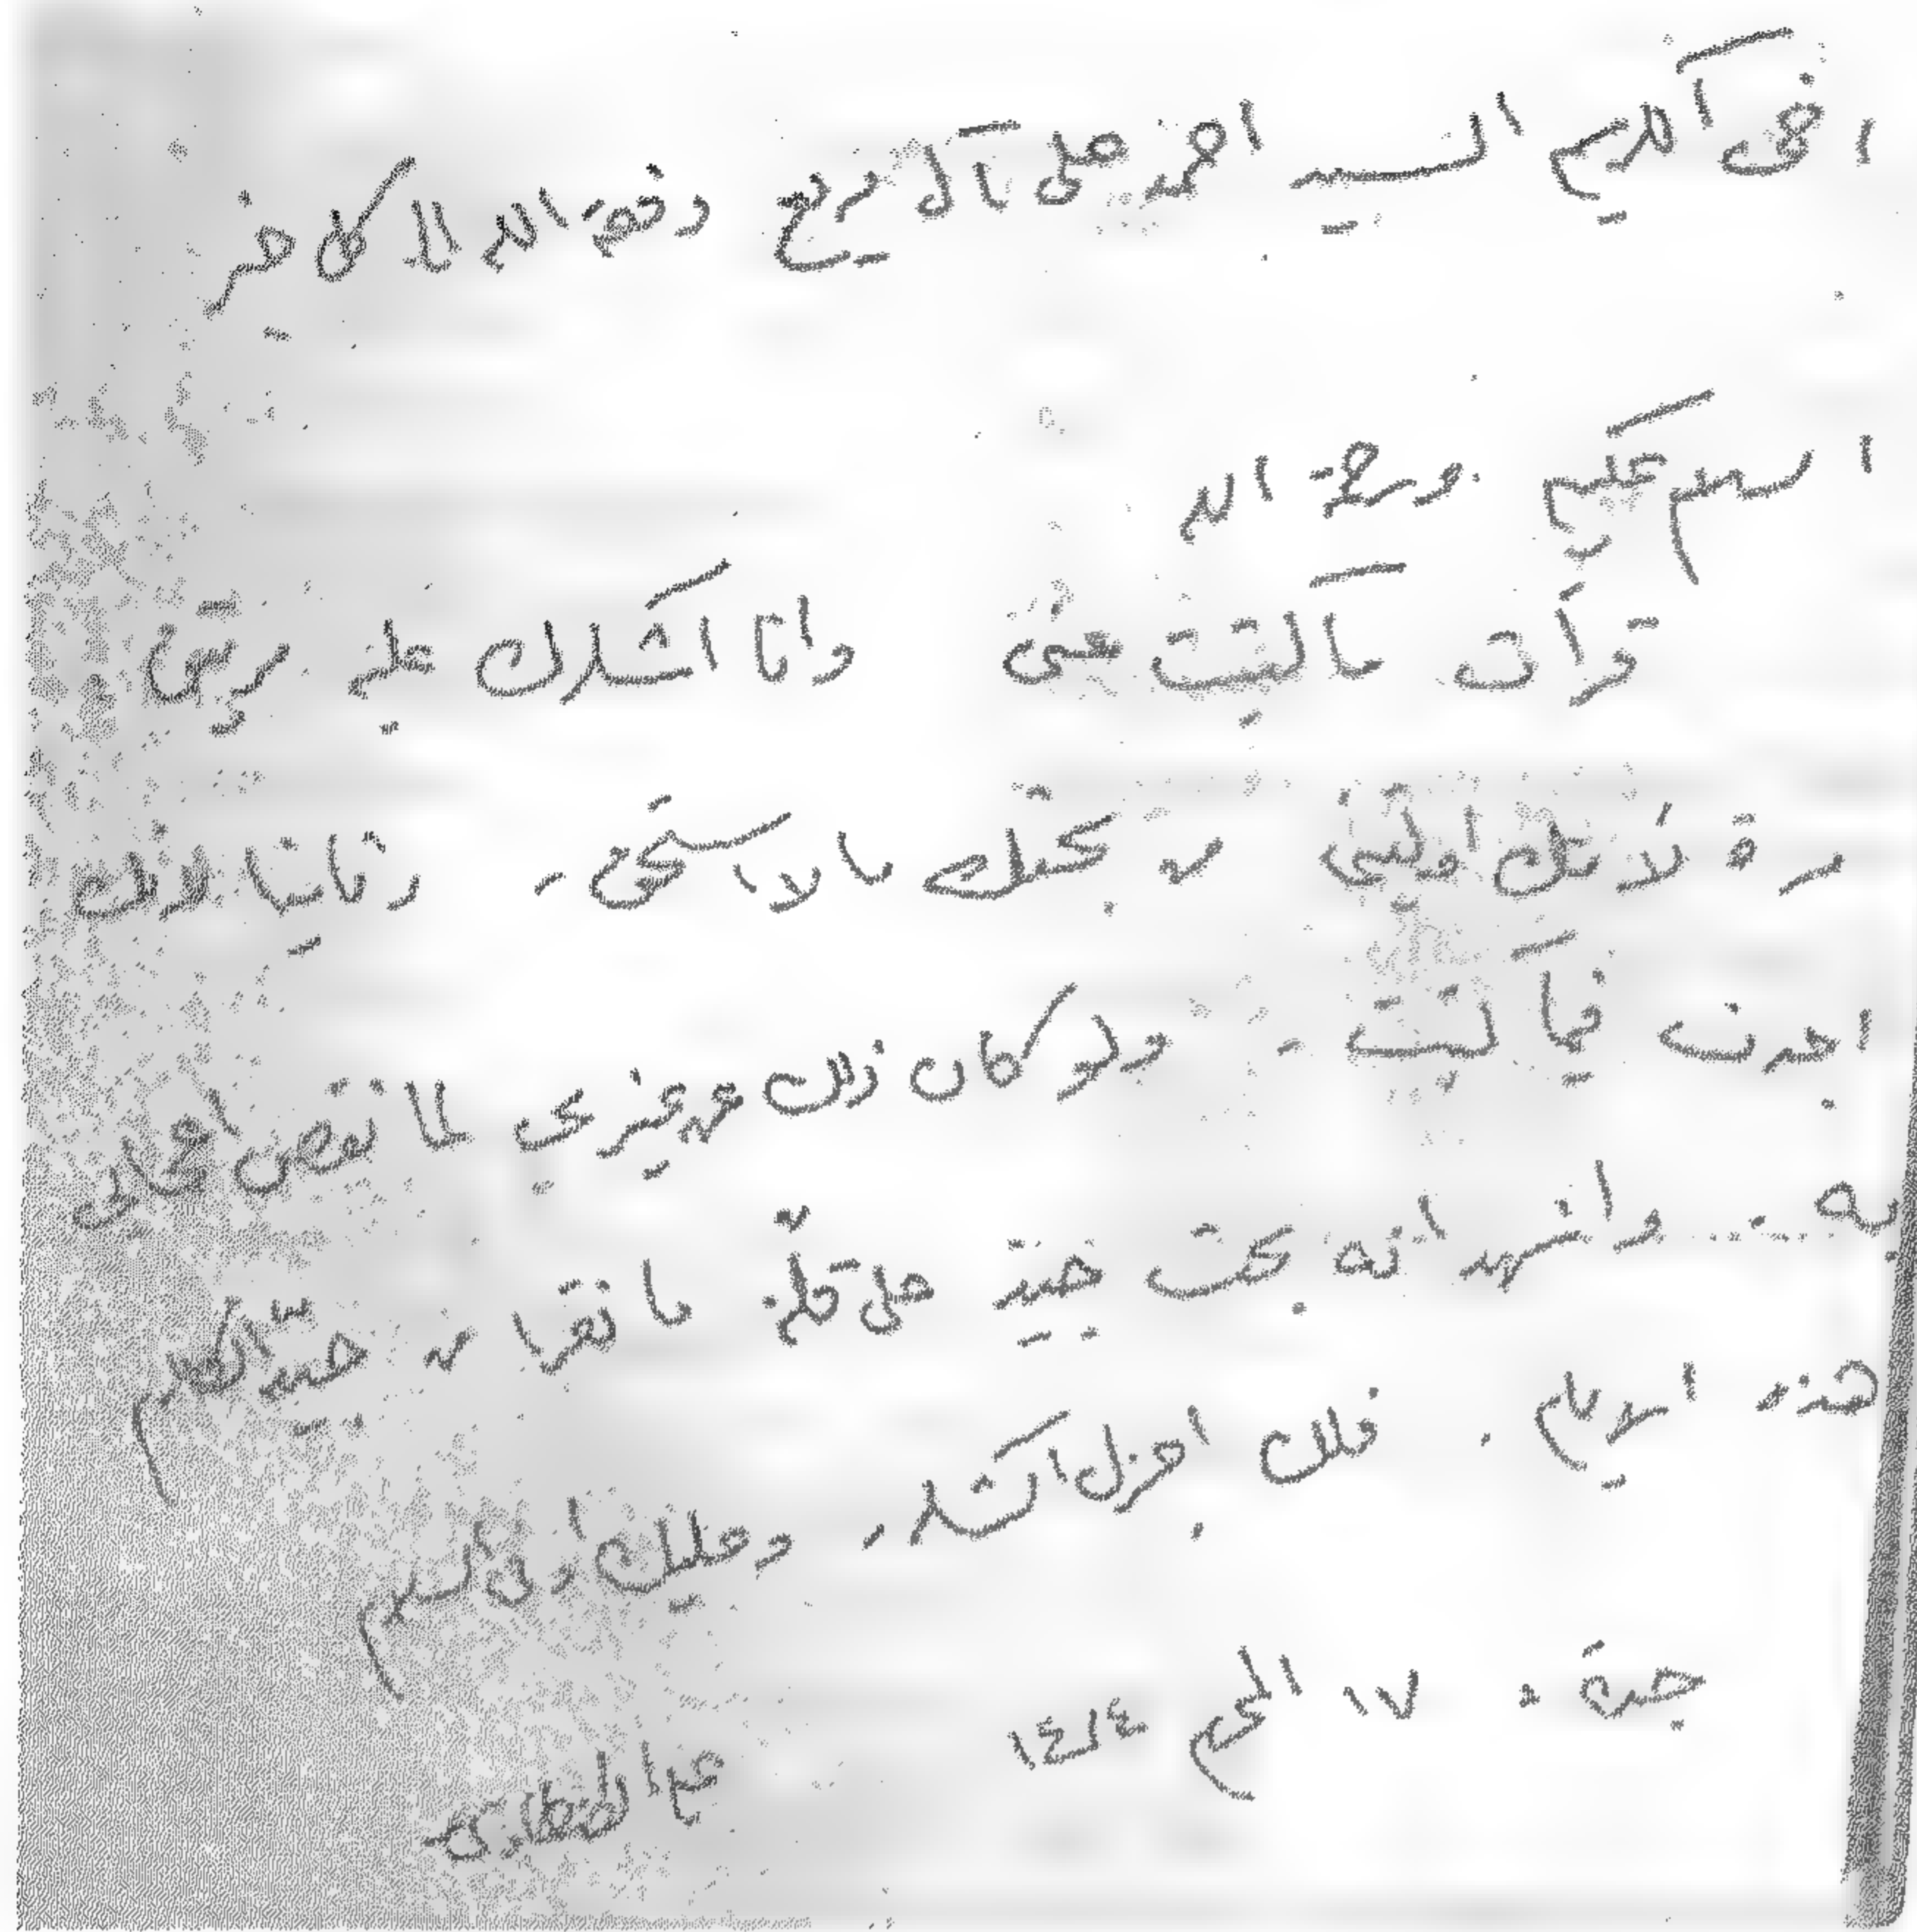 اخي الكريم السيد احمد علي آل مريع وفقه الله لكل خير
السلام عليكم ورحمة الله
قرأت ما كتبت عني وانا اشكرك عليه مرتين
مرة لأنك اوليتني من بحثك ما لا استحق . وثانيا لانك
اجدت فيما كتبت . ولو كان ذلك عن غيري لما نقص اعجابي
به .. واشهد انه بحث جيد على قلة ما نقرأ من جيد الكلام
هذه الايام . فلك اجزل الشكر . وعليك ازكى السلام
جدة . ١٧ المحرم ١٤١٤
علي الطنطاوي